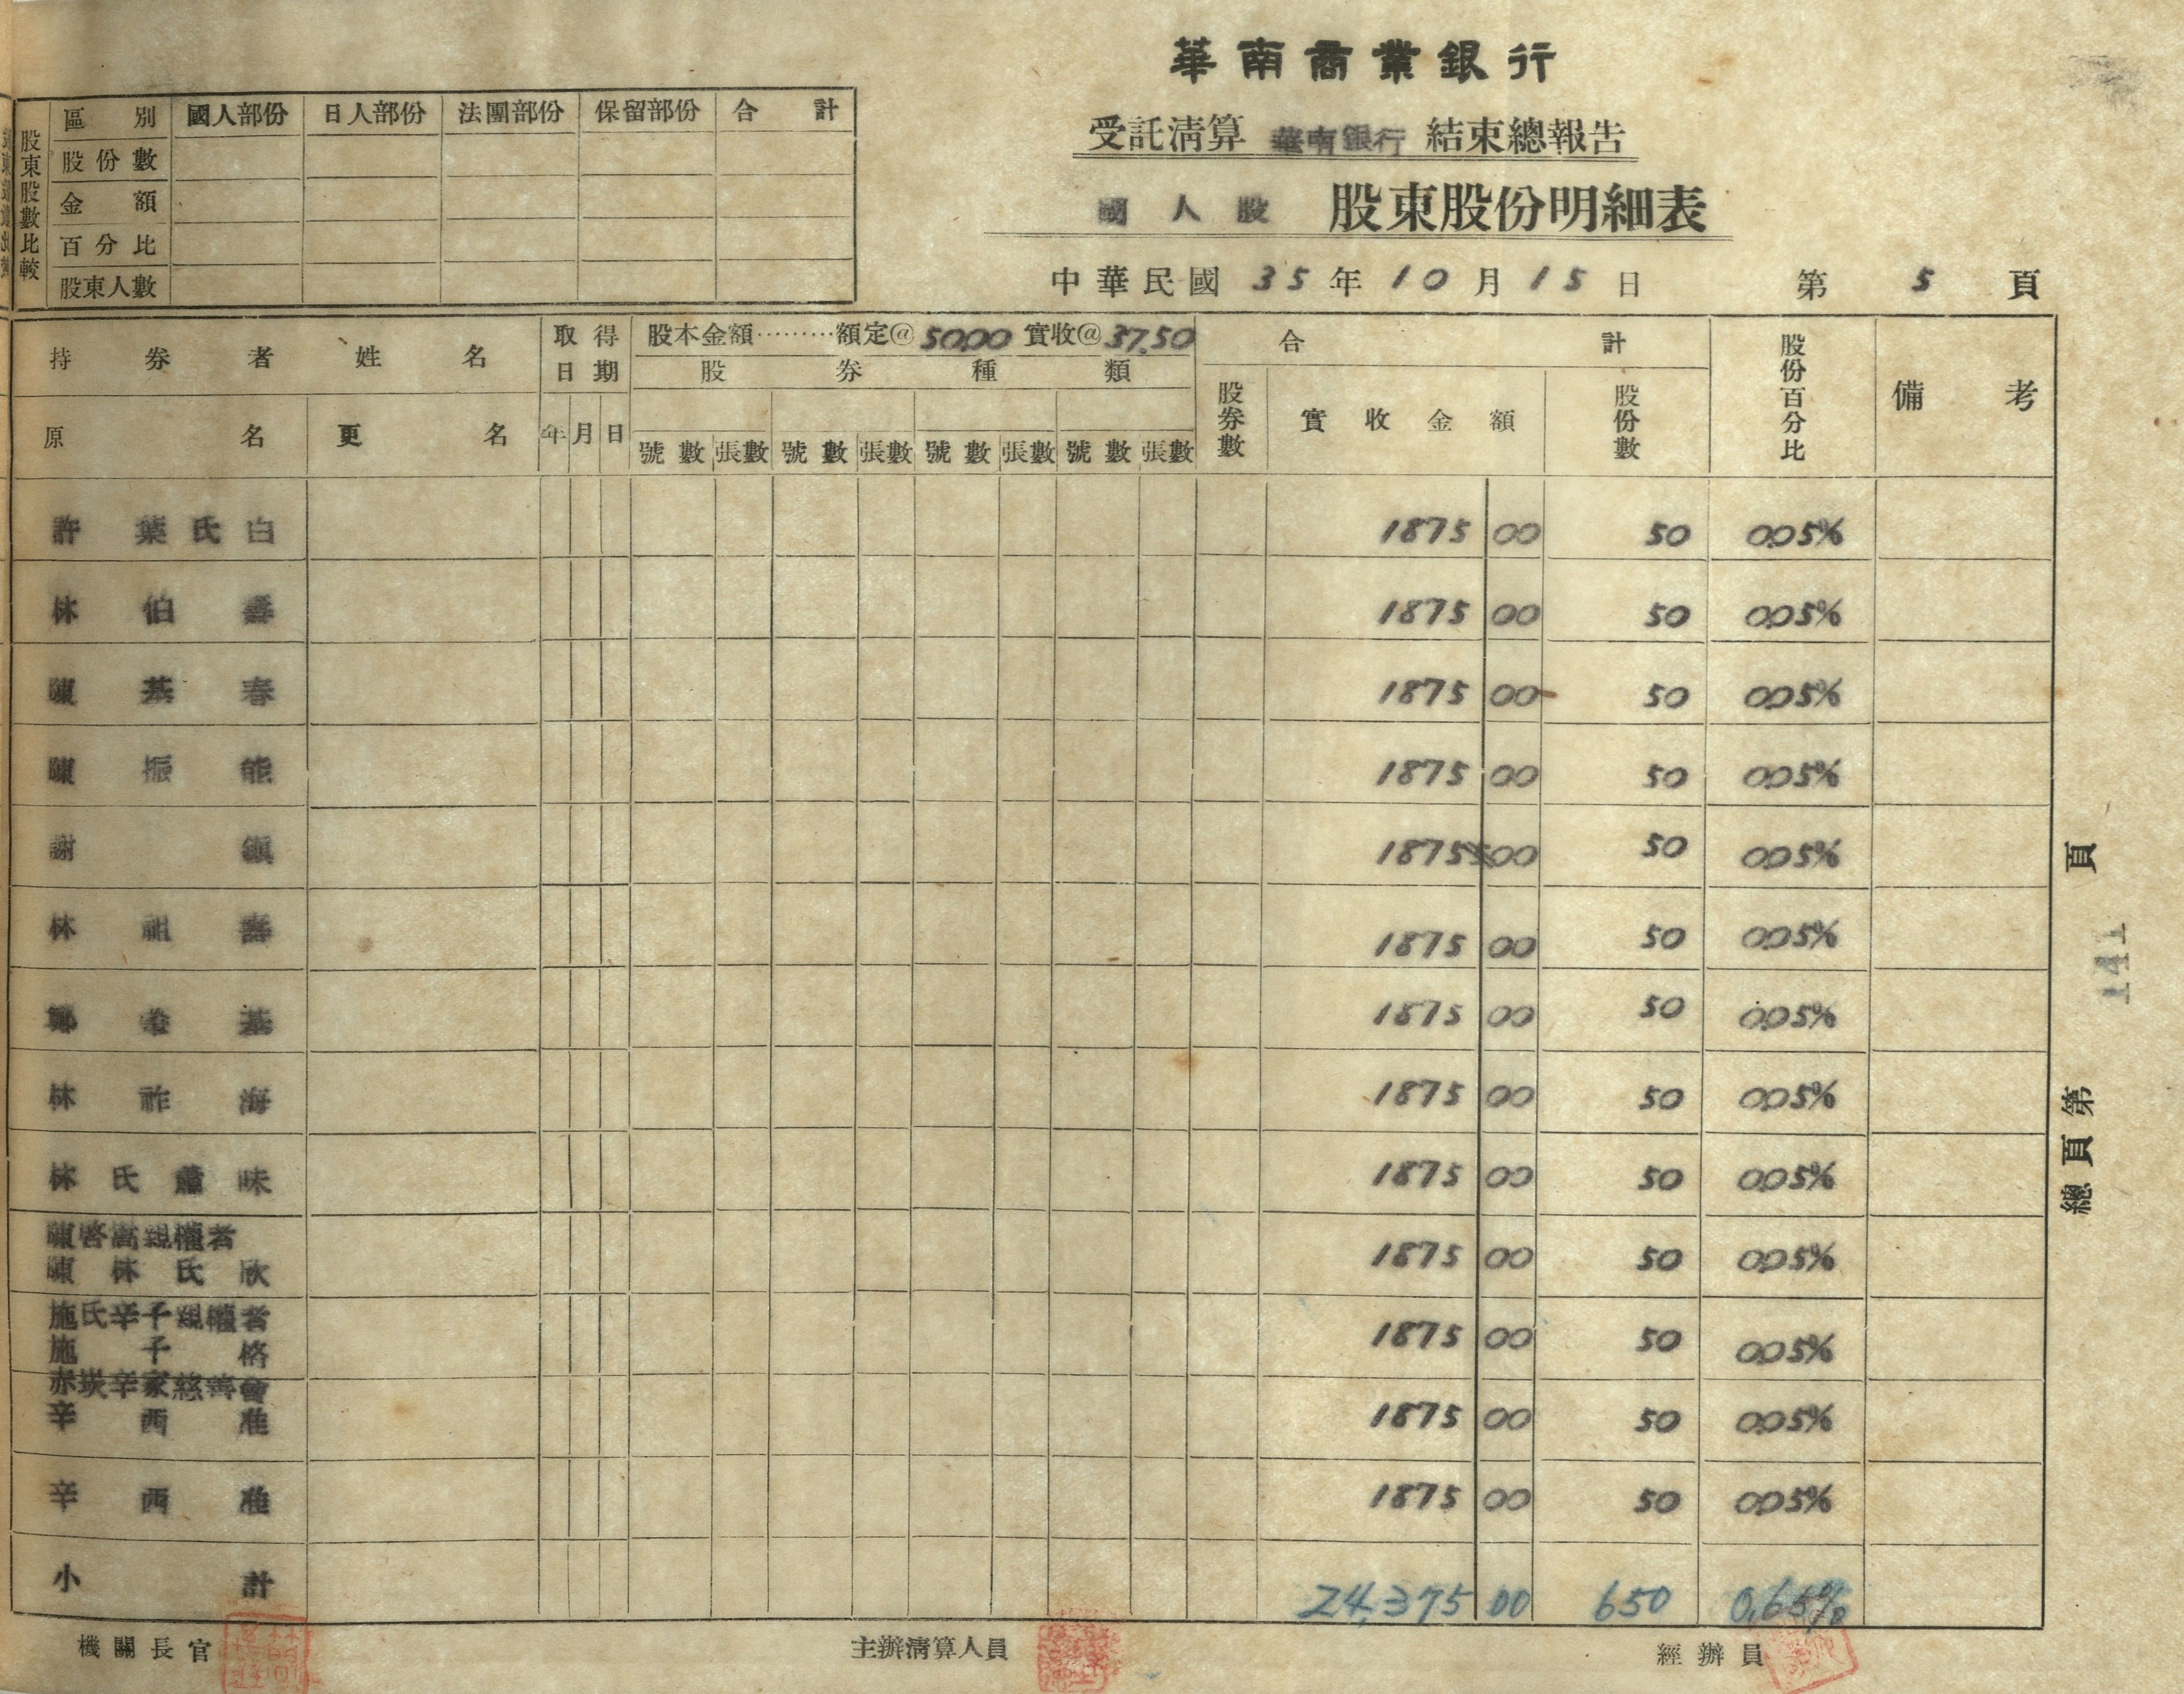 華南商業銀行
受託清算 華南銀行 結束總報告
國人股 股東股份明細表
中華民國 35 年 10 月 15 日 第 5 頁
股東股數比較
區別 國人部份 日人部份 法團部份 保留部份 合計
股份數
金額
百分比
股東人數
持券者姓名 取得日期 股本金額………額定@5000 實收@37.50 合計 股份百分比 備考
股券種類
原名 更名 年 月 日 號數 張數 號數 張數 號數 張數 號數 張數 股券數 實收金額 股份數
許葉氏白 1875 00 50 0.05%
林伯壽 1875 00 50 0.05%
陳基春 1875 00 50 0.05%
陳振能 1875 00 50 0.05%
謝 1875 00 50 0.05%
林祖壽 1875 00 50 0.05%
鄭 基 1875 00 50 0.05%
林祚海 1875 00 50 0.05%
林氏蕭味 1875 00 50 0.05%
陳啓嵩親權者
陳林氏欣 1875 00 50 0.05%
施氏辛子親權者
施子格 1875 00 50 0.05%
赤崁辛家慈善會
辛西淮 1875 00 50 0.05%
辛西淮 1875 00 50 0.05%
小計 24,375 00 650 0.65%
機關長官 主辦清算人員 經辦員
總頁第 頁
141